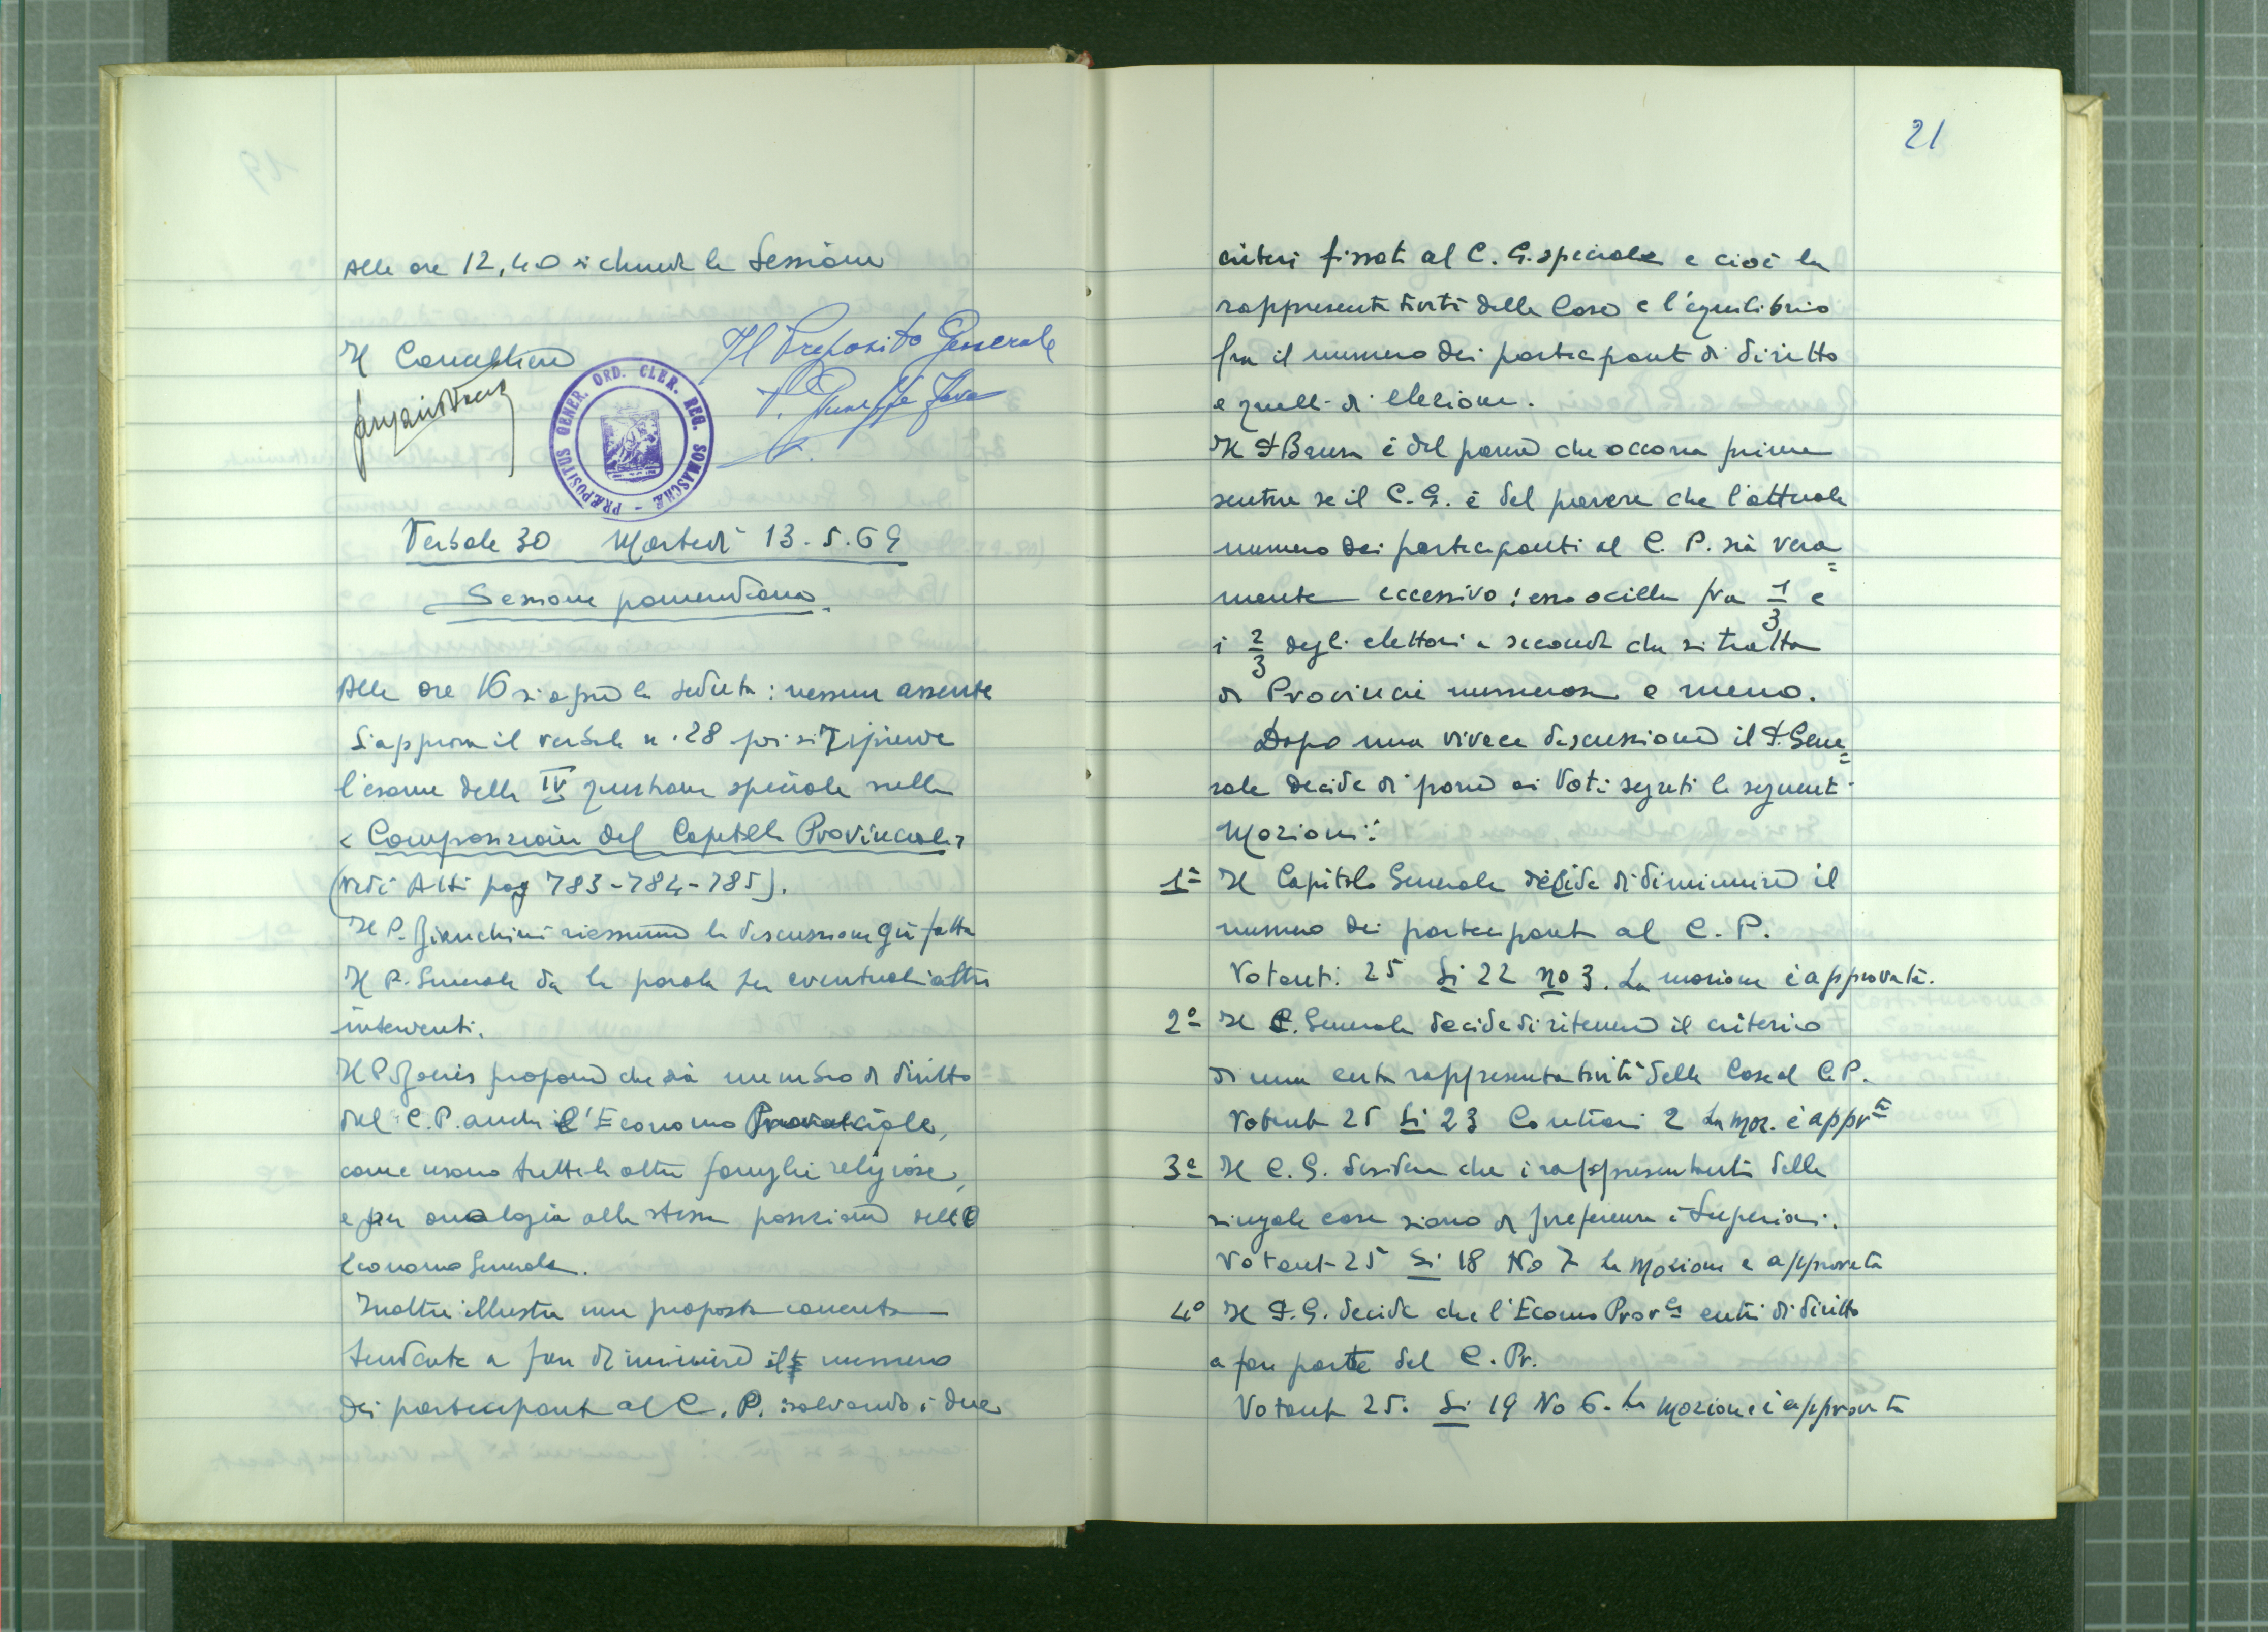 Alle ore 12,40 si chiude la Sessione
Il Cancelliere
Il Preposito Generale
P. Giuseppe Fava
PRÆPOSITUS GENER. ORD. CLER. REG. SOMASCHÆ
Verbale 30 Martedì 13.5.69
Sessione pomeridiana
Alle ore 16 si apre la seduta: nessun assente
Si approva il verbale n. 28 poi si riprende
l'esame della IV questione speciale sulla
< Composizione del Capitolo Provinciale >
(vedi Atti pag 783-784-785).
Il P. Bianchini riassume la discussione già fatta
Il P. Generale da la parola per eventuali altri
interventi.
Il P. propone che sia membro di diritto
del C.P. anche l'Economo Provinciale,
come usano tutte le altre famiglie religiose,
e per analogia alla stessa posizione dell
Economo Generale.
Inoltre illustra una proposta concreta
tendente a far diminuire il numero
dei partecipanti al C. P. salvando i due
21
criteri fissati al C. G. speciale e cioè la
rappresentatività delle Case e l'equilibrio
fra il numero dei partecipanti di diritto
e quelli di elezione.
Il P. Brusa è del parere che occorra prima
sentire se il C. G. è del parere che l'attuale
numero dei partecipanti al C. P. sia vera=
mente eccessivo: esso oscilla fra 1/3 e
i 2/3 degli elettori a seconda che si tratta
di Provincie numerose o meno.
Dopo una vivace discussione il P. Gene=
rale decide di porre ai Voti segreti le seguenti
Mozioni:
1ª Il Capitolo Generale decide di diminuire il
numero dei partecipanti al C. P.
Votanti: 25 Si 22 no 3. La mozione è approvata.
2ª Il C. Generale decide di ritenere il criterio
di una certa rappresentatività delle Case al C.P.
Votanti 25 Si 23 Contrari 2 La moz. è appr.ta
3ª Il C. G. desidera che i rappresentanti delle
singole case siano di preferenza i Superiori.
Votanti 25 Si 18 No 7 La Mozione è approvata
4ª Il P. G. decide che l'Econo Prov.le entri di diritto
a far parte del C. Pr.
Votanti 25. Si 19 No 6. La mozione è approvata